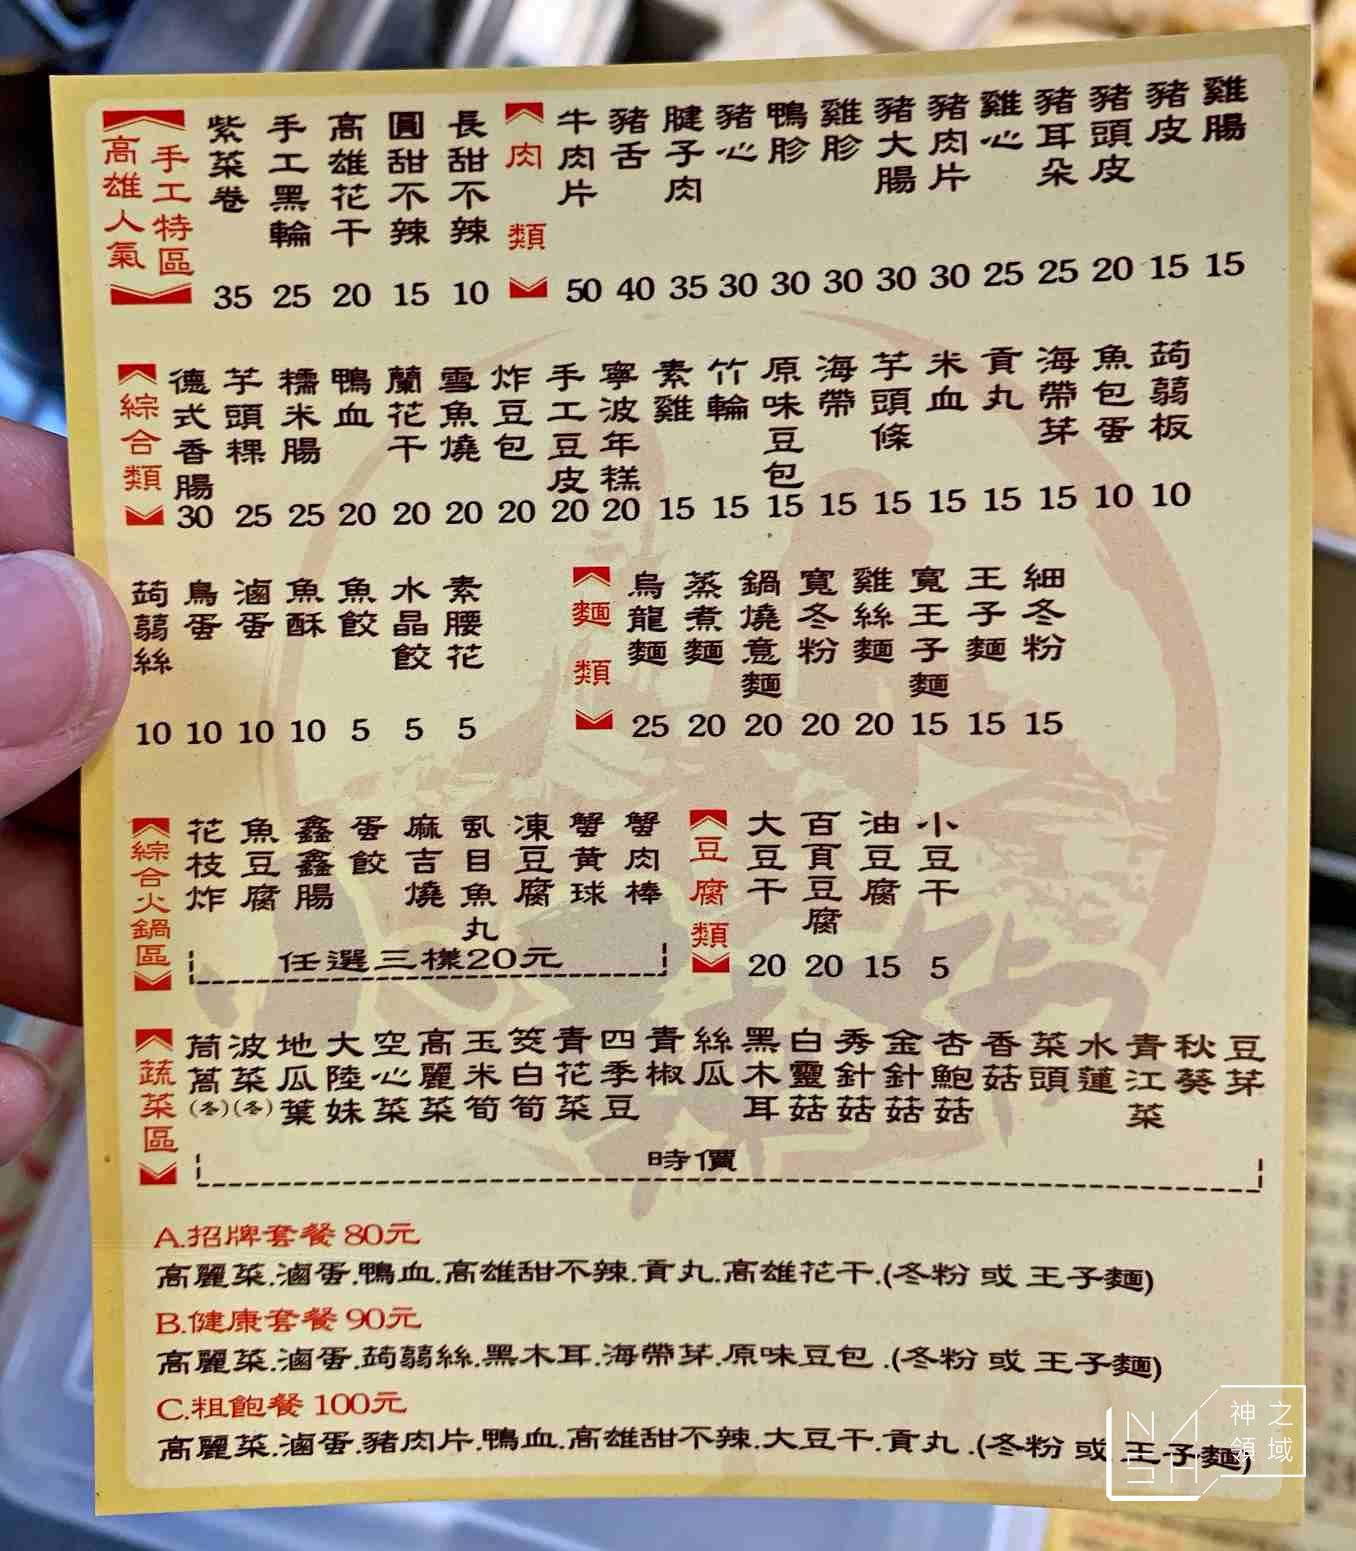 高雄人氣
手工特區
紫菜卷 35
手工黑輪 25
高雄花干 20
圓甜不辣 15
長甜不辣 10
肉類
牛肉片 50
豬舌 40
腱子肉 35
豬心 30
鴨胗 30
雞胗 30
豬大腸 30
豬肉片 30
雞心 25
豬耳朵 25
豬頭皮 20
豬皮 15
雞腸 15
綜合類
德式香腸 30
芋頭粿 25
糯米腸 25
鴨血 20
蘭花干 20
雪魚燒 20
炸豆包 20
手工豆皮 20
寧波年糕 20
素雞 15
竹輪 15
原味豆包 15
海帶 15
芋頭條 15
米血 15
貢丸 15
海帶芽 15
魚包蛋 10
蒟蒻板 10
蒟蒻絲 10
鳥蛋 10
滷蛋 10
魚酥 10
魚餃 5
水晶餃 5
素腰花 5
麵類
烏龍麵 25
蒸煮麵 20
鍋燒意麵 20
寬冬粉 20
雞絲麵 20
寬王子麵 15
王子麵 15
細冬粉 15
綜合火鍋區
花枝炸
魚豆腐
鑫鑫腸
蛋餃
麻吉燒
虱目魚丸
凍豆腐
蟹黃球
蟹肉棒
任選三樣20元
豆腐類
大豆干 20
百頁豆腐 20
油豆腐 15
小豆干 5
蔬菜區
茼萵(冬)
波菜(冬)
地瓜葉
大陸妹
空心菜
高麗菜
玉米筍
筊白筍
青花菜
四季豆
青椒
絲瓜
黑木耳
白靈菇
秀針菇
金針菇
杏鮑菇
香菇
菜頭
水蓮
青江菜
秋葵
豆芽
時價
A.招牌套餐 80元
高麗菜.滷蛋.鴨血.高雄甜不辣.貢丸.高雄花干.(冬粉 或 王子麵)
B.健康套餐 90元
高麗菜.滷蛋.蒟蒻絲.黑木耳.海帶芽.原味豆包.(冬粉 或 王子麵)
C.粗飽餐 100元
高麗菜.滷蛋.豬肉片.鴨血.高雄甜不辣.大豆干.貢丸.(冬粉 或 王子麵)
神之領域